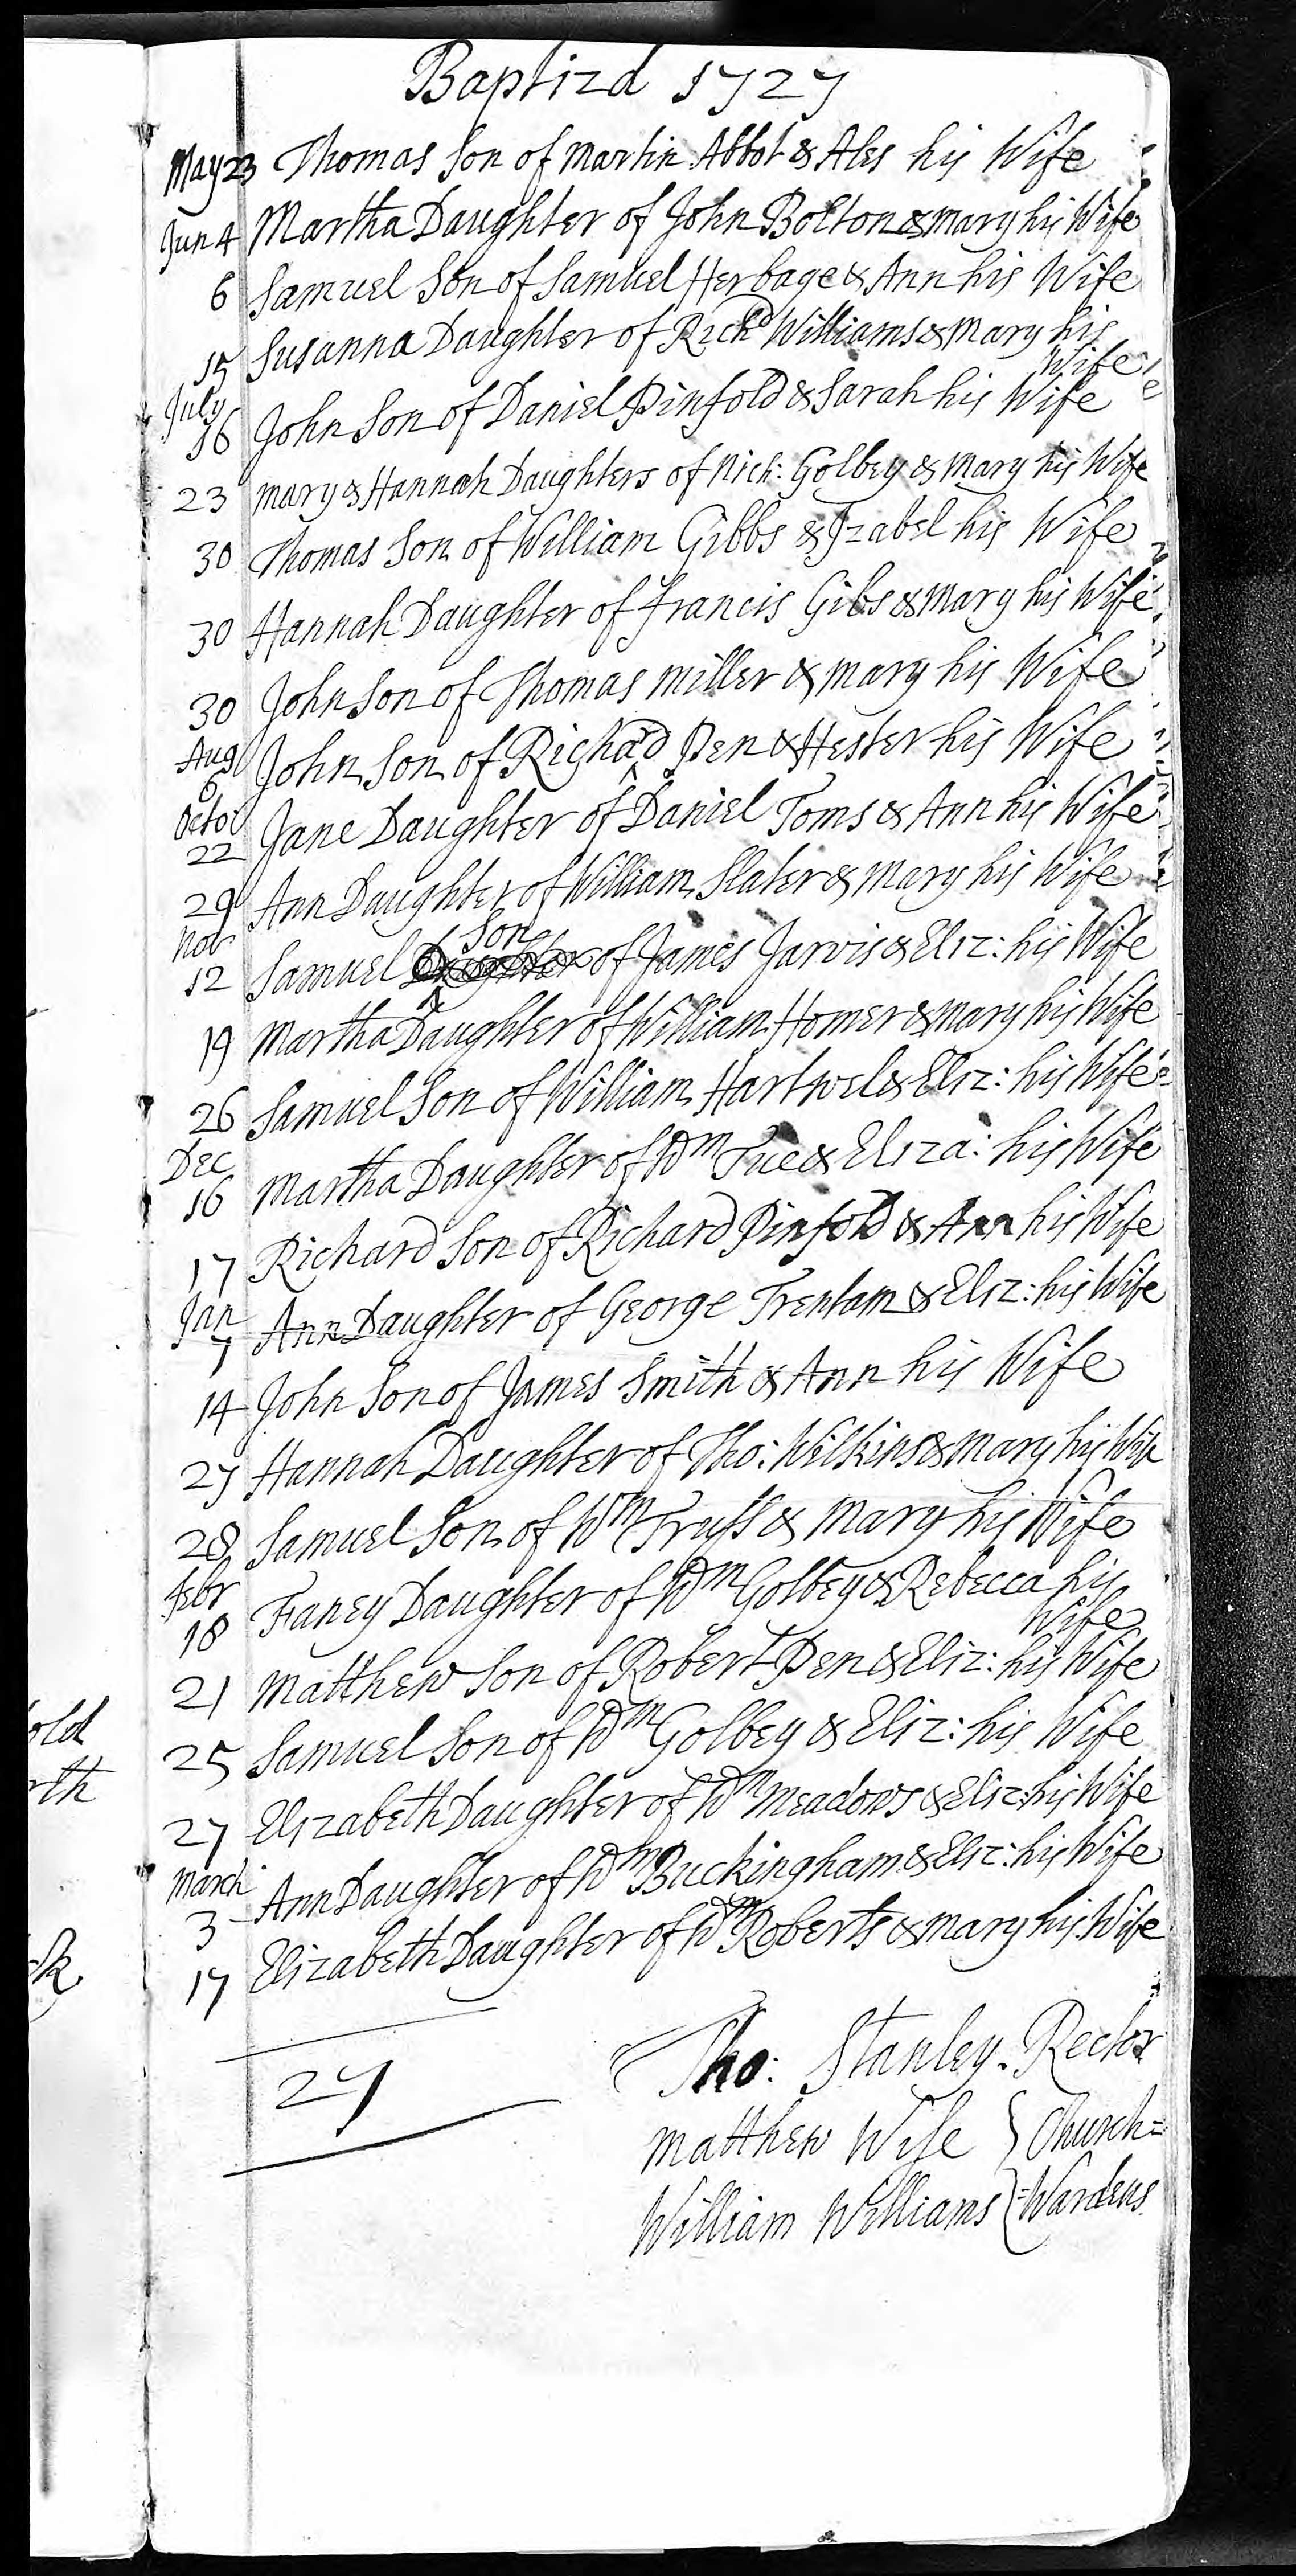 Baptizd 1727
May 23 Thomas Son of Martin Abbot & Ales his Wife
Jun 4 Martha Daughter of John Bolton & Mary his Wife
6 Samuel Son of Samuel Herbage & Ann his Wife
15 Susanna Daughter of Richd Williams & Mary his
Wife
July
16 John Son of Daniel Pinfold & Sarah his Wife
23 Mary & Hannah Daughters of Nich: Golbey & Mary his Wife
30 Thomas Son of William Gibbs & Izabel his Wife
30 Hannah Daughter of Francis Gibs & Mary his Wife
30 John Son of Thomas Miller & Mary his Wife
Aug
6 John Son of Richard Pen & Hester his Wife
Octo
22 Jane Daughter of Daniel Toms & Ann his Wife
29 Ann Daughter of William Slater & Mary his Wife
Nov
12 Samuel Son of James Jarvis & Eliz: his Wife
19 Martha Daughter of William Homer & Mary his Wife
26 Samuel Son of William Hartwel & Eliz: his Wife
Dec
16 Martha Daughter of Wm Tue & Eliza: his Wife
17 Richard Son of Richard Pinfold & Ann his Wife
Jan
7 Ann Daughter of George Trentam & Eliz: his Wife
14 John Son of James Smith & Ann his Wife
27 Hannah Daughter of Tho: Wilkins & Mary his Wife
28 Samuel Son of Wm Truss & Mary his Wife
Febr
18 Faney Daughter of Wm Golbey & Rebecca his
Wife
21 Matthew Son of Robert Pen & Eliz: his Wife
25 Samuel Son of Wm Golbey & Eliz: his Wife
27 Elizabeth Daughter of Wm Meadows & Eliz: his Wife
March
3 Ann Daughter of Wm Buckingham & Eliz: his Wife
17 Elizabeth Daughter of Wm Roberts & Mary his Wife
27
Tho: Stanley. Rector
Matthew Wise } Church=
William Williams } =Wardens
old
rth